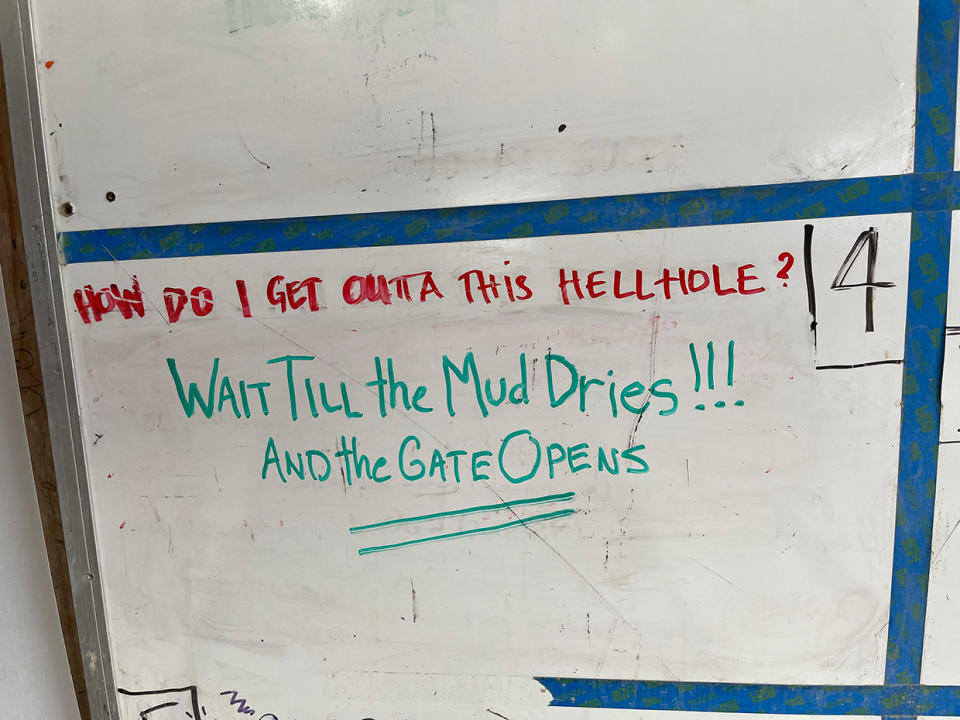 HOW DO I GET OUTTA THIS HELLHOLE?
4
WAIT TILL the Mud Dries!!!
AND the GATE OPENS